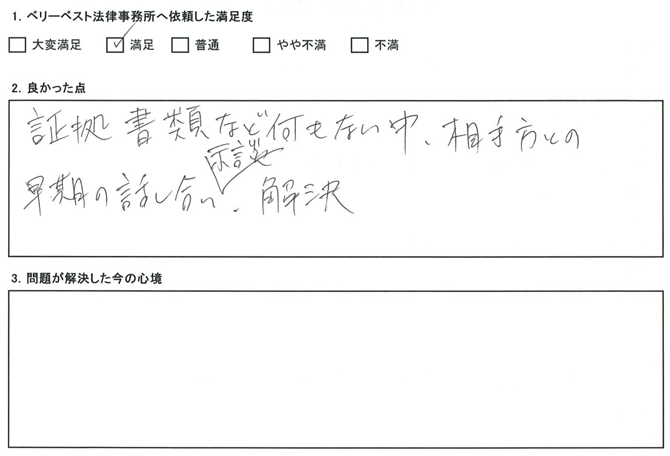 1. ベリーベスト法律事務所へ依頼した満足度
□ 大変満足 ☑ 満足 □ 普通 □ やや不満 □ 不満
2. 良かった点
証拠書類など何もない中、相手方との
示談
早期の話し合い、解決
3. 問題が解決した今の心境